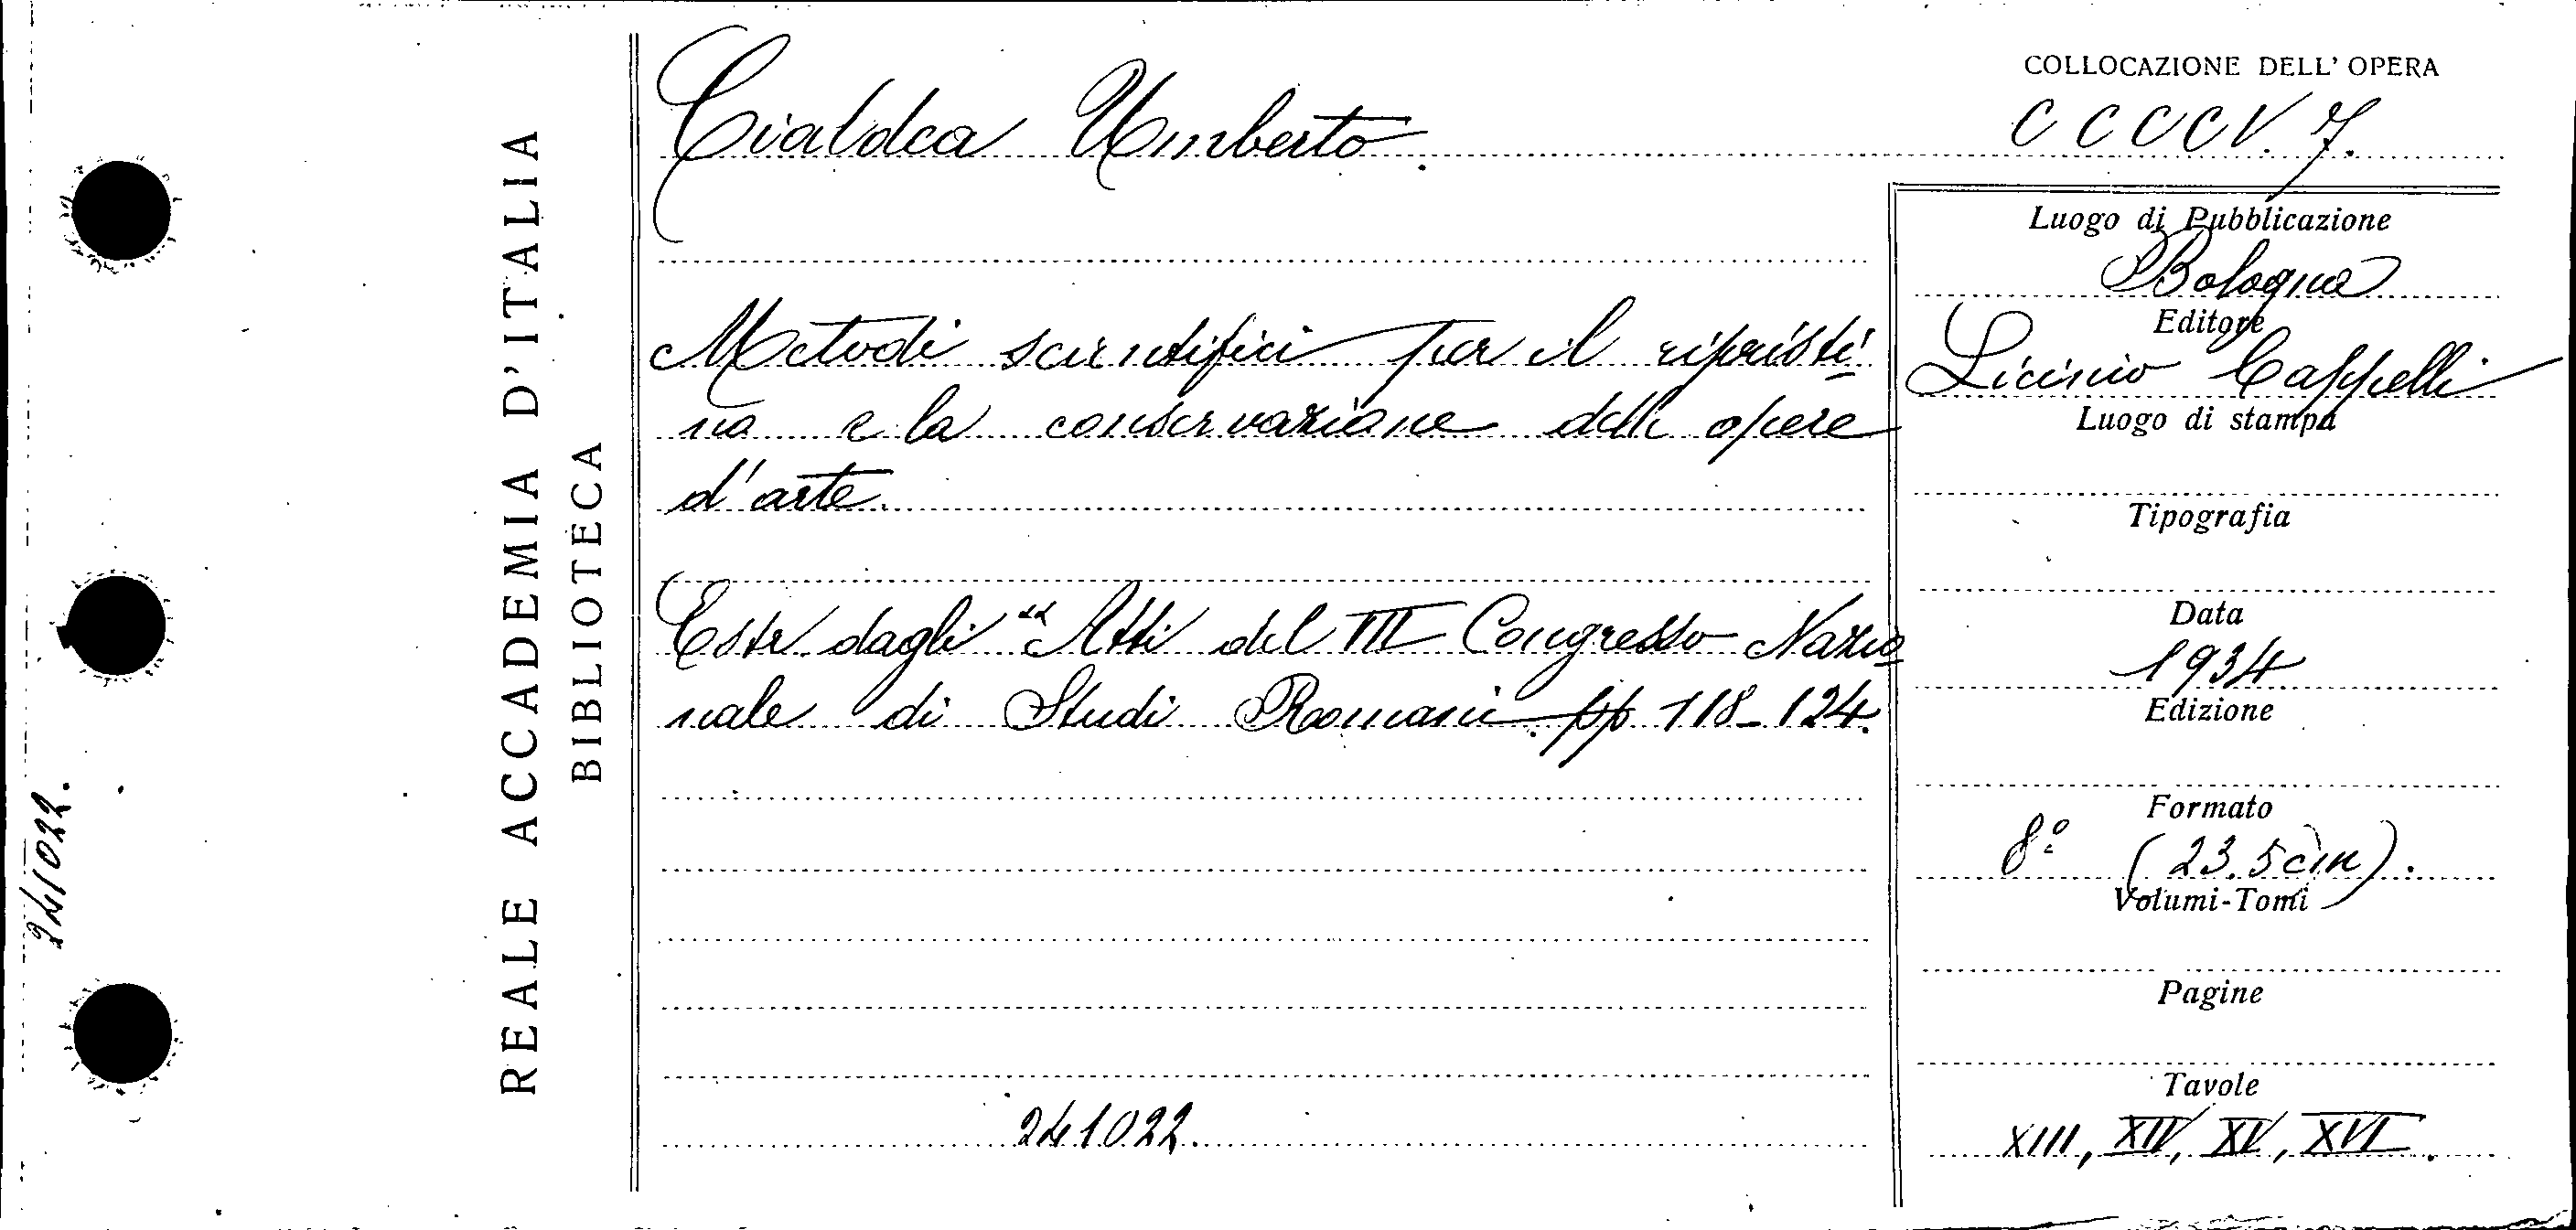 REALE ACCADEMIA D'ITALIA
BIBLIOTECA
241022.
Cialdea Umberto.
Metodi scientifici per il ripristi-
no e la conservazione delle opere
d'arte.
Estr. dagli "Atti del III Congresso Nazio-
nale di Studi Romani. pp 118-124.
241022.
COLLOCAZIONE DELL' OPERA
CCCCV. 7.
Luogo di Pubblicazione
Bologna
Editore
Licinio Cappelli
Luogo di stampa
Tipografia
Data
1934
Edizione
Formato
8° (23.5 cm).
Volumi-Tomi
Pagine
Tavole
XIII, XIV, XV, XVI.